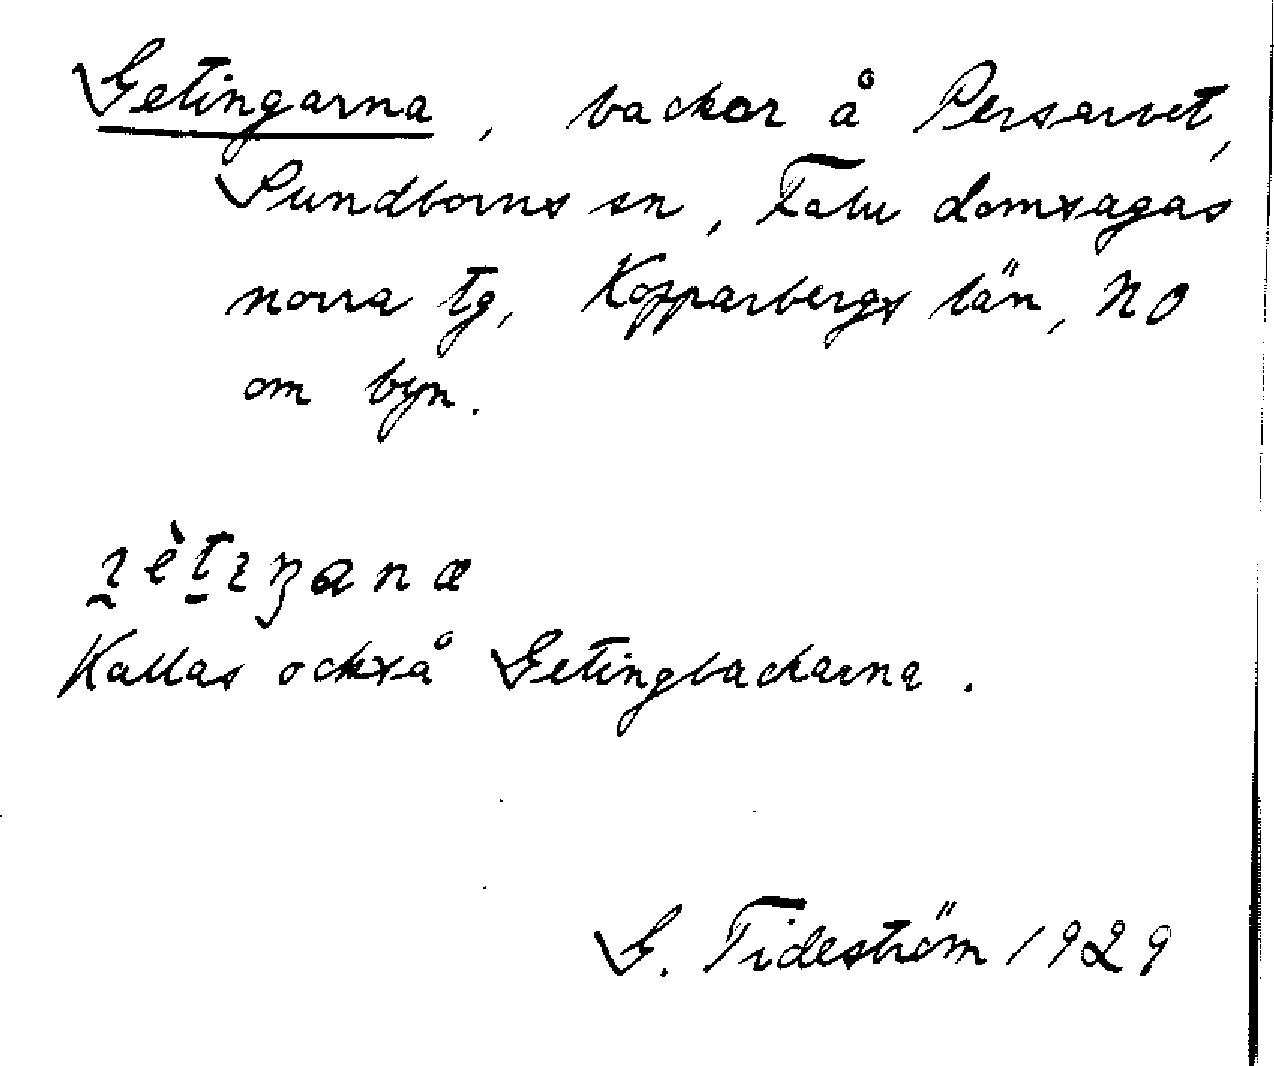 Getingarna, backar å Persarvet,
Sundborns sn, Falu domsagas
norra tg, Kopparbergs län, NO
om byn.
Kallas också Getingbackarna.
G. Tideström 1929